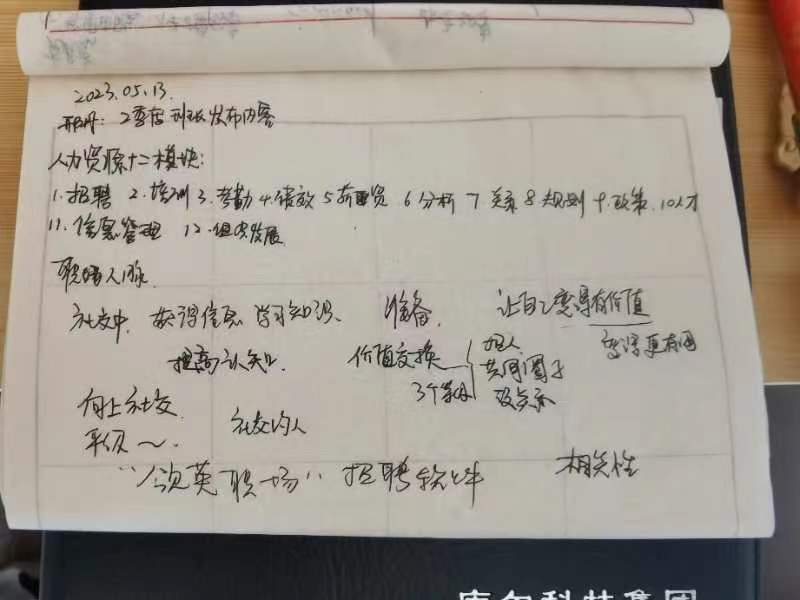 2023.05.13.
2季度 班级发布内容
人力资源十二模块:
1.招聘 2.培训 3.考勤 4.绩效 5.薪资 6分析 7关系 8规划 9.政策.10人才
11.信息管理 12.组织发展
职场人脉
社交中, 获得信息 学习知识、 准备, 让自己变得有价值
提高认知 价值交换 熟人 变得更有用
共同圈子
3个条件 没关系
向上社交 社交的人
平级～.
"领英职场" 招聘软件 相关性
科技集团